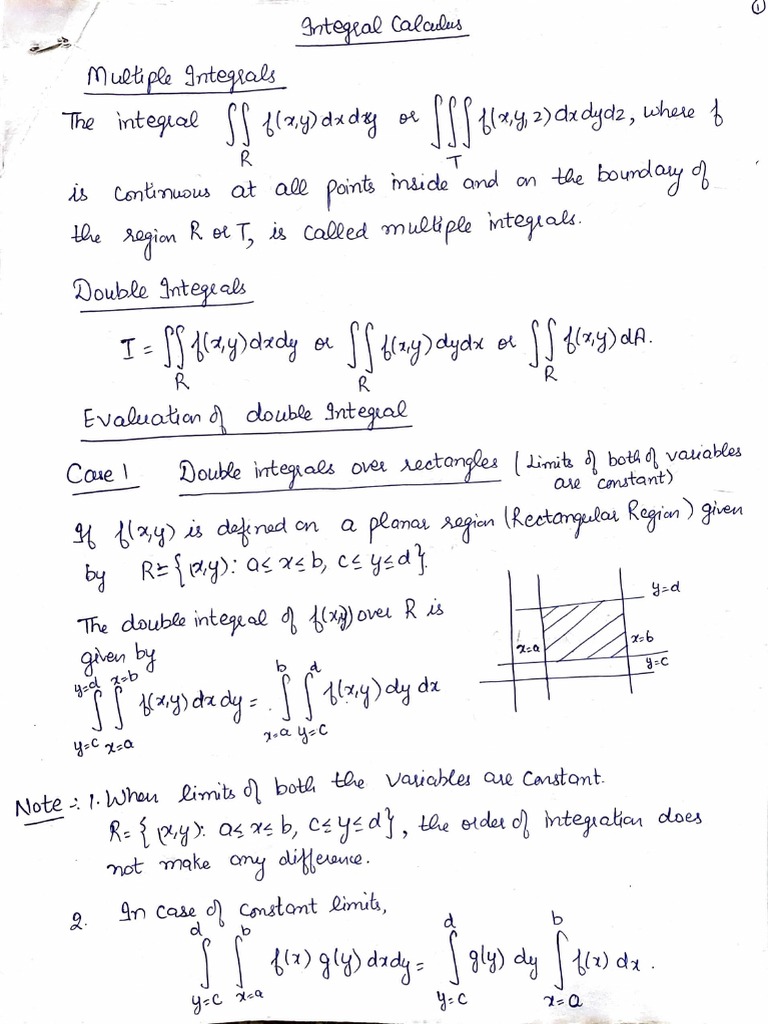 ①
Integral Calculus
Multiple Integrals
The integral ∬_R f(x,y) dx dy or ∭_T f(x,y,z) dx dy dz, where f
is continuous at all points inside and on the boundary of
the region R or T, is called multiple integrals.
Double Integrals
I = ∬_R f(x,y) dx dy or ∬_R f(x,y) dy dx or ∬_R f(x,y) dA.
Evaluation of double Integral
Case 1 Double integrals over rectangles (Limits of both of variables
are constant)
If f(x,y) is defined on a planar region (Rectangular Region) given
by R = {(x,y): a ≤ x ≤ b, c ≤ y ≤ d}.
The double integral of f(x,y) over R is
given by
∫_{y=c}^{y=d} ∫_{x=a}^{x=b} f(x,y) dx dy = ∫_{x=a}^{b} ∫_{y=c}^{d} f(x,y) dy dx
y=d
x=a
x=b
y=c
Note :- 1. When limits of both the variables are constant.
R = {(x,y): a ≤ x ≤ b, c ≤ y ≤ d}, the order of integration does
not make any difference.
2. In case of constant limits,
∫_{y=c}^{d} ∫_{x=a}^{b} f(x) g(y) dx dy = ∫_{y=c}^{d} g(y) dy ∫_{x=a}^{b} f(x) dx.